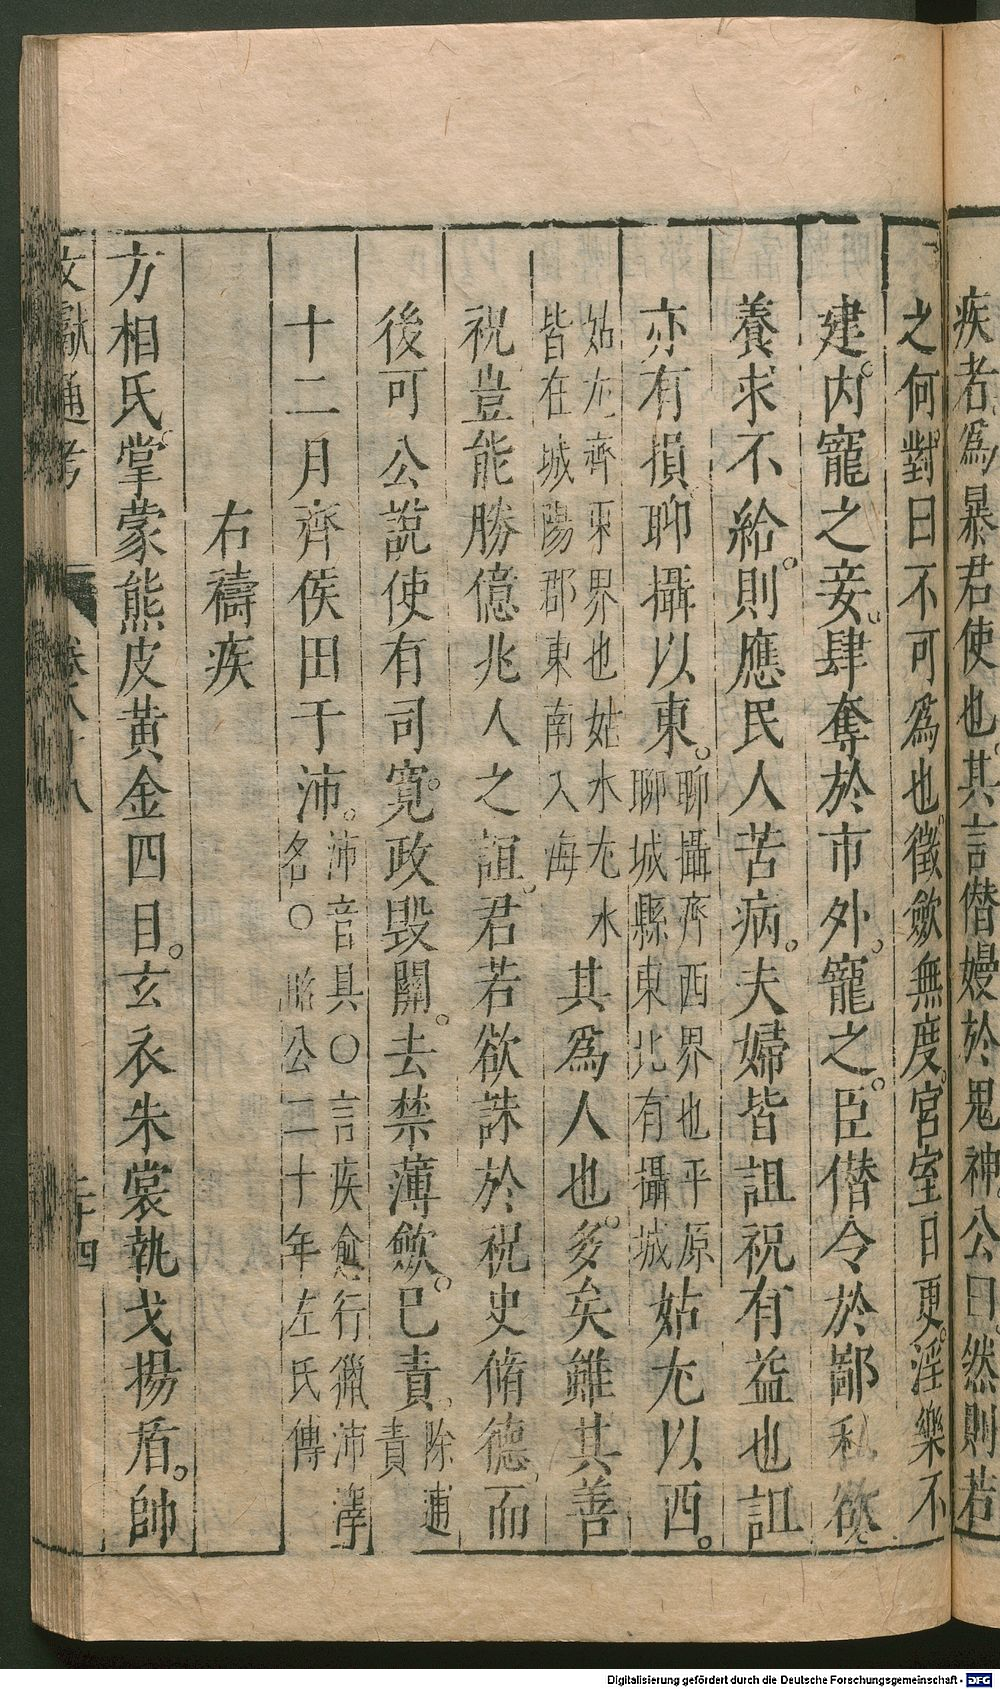 疾者爲暴君使也其言僭嫚於鬼神公曰然則若
之何對曰不可爲也徵斂無度宮室日更淫樂不
建内寵之妾肆奪於市外寵之臣僭令於鄙私欲
養求不給則應民人苦病夫婦皆詛祝有益也詛
亦有損聊攝以東聊攝齊西界也平原聊城縣東北有攝城姑尤以西
姑尤齊東界也姑水尤水皆在城陽郡東南入海其爲人也多矣雖其善
祝豈能勝億兆人之詛君若欲誅於祝史脩德而
後可公説使有司寬政毀關去禁薄斂已責除逋責
十二月齊侯田于沛沛音具〇言疾愈行獵沛澤名〇昭公二十年左氏傳
右禱疾
方相氏掌蒙熊皮黃金四目玄衣朱裳執戈揚盾帥
文獻通考
Digitalisierung gefördert durch die Deutsche Forschungsgemeinschaft - DFG